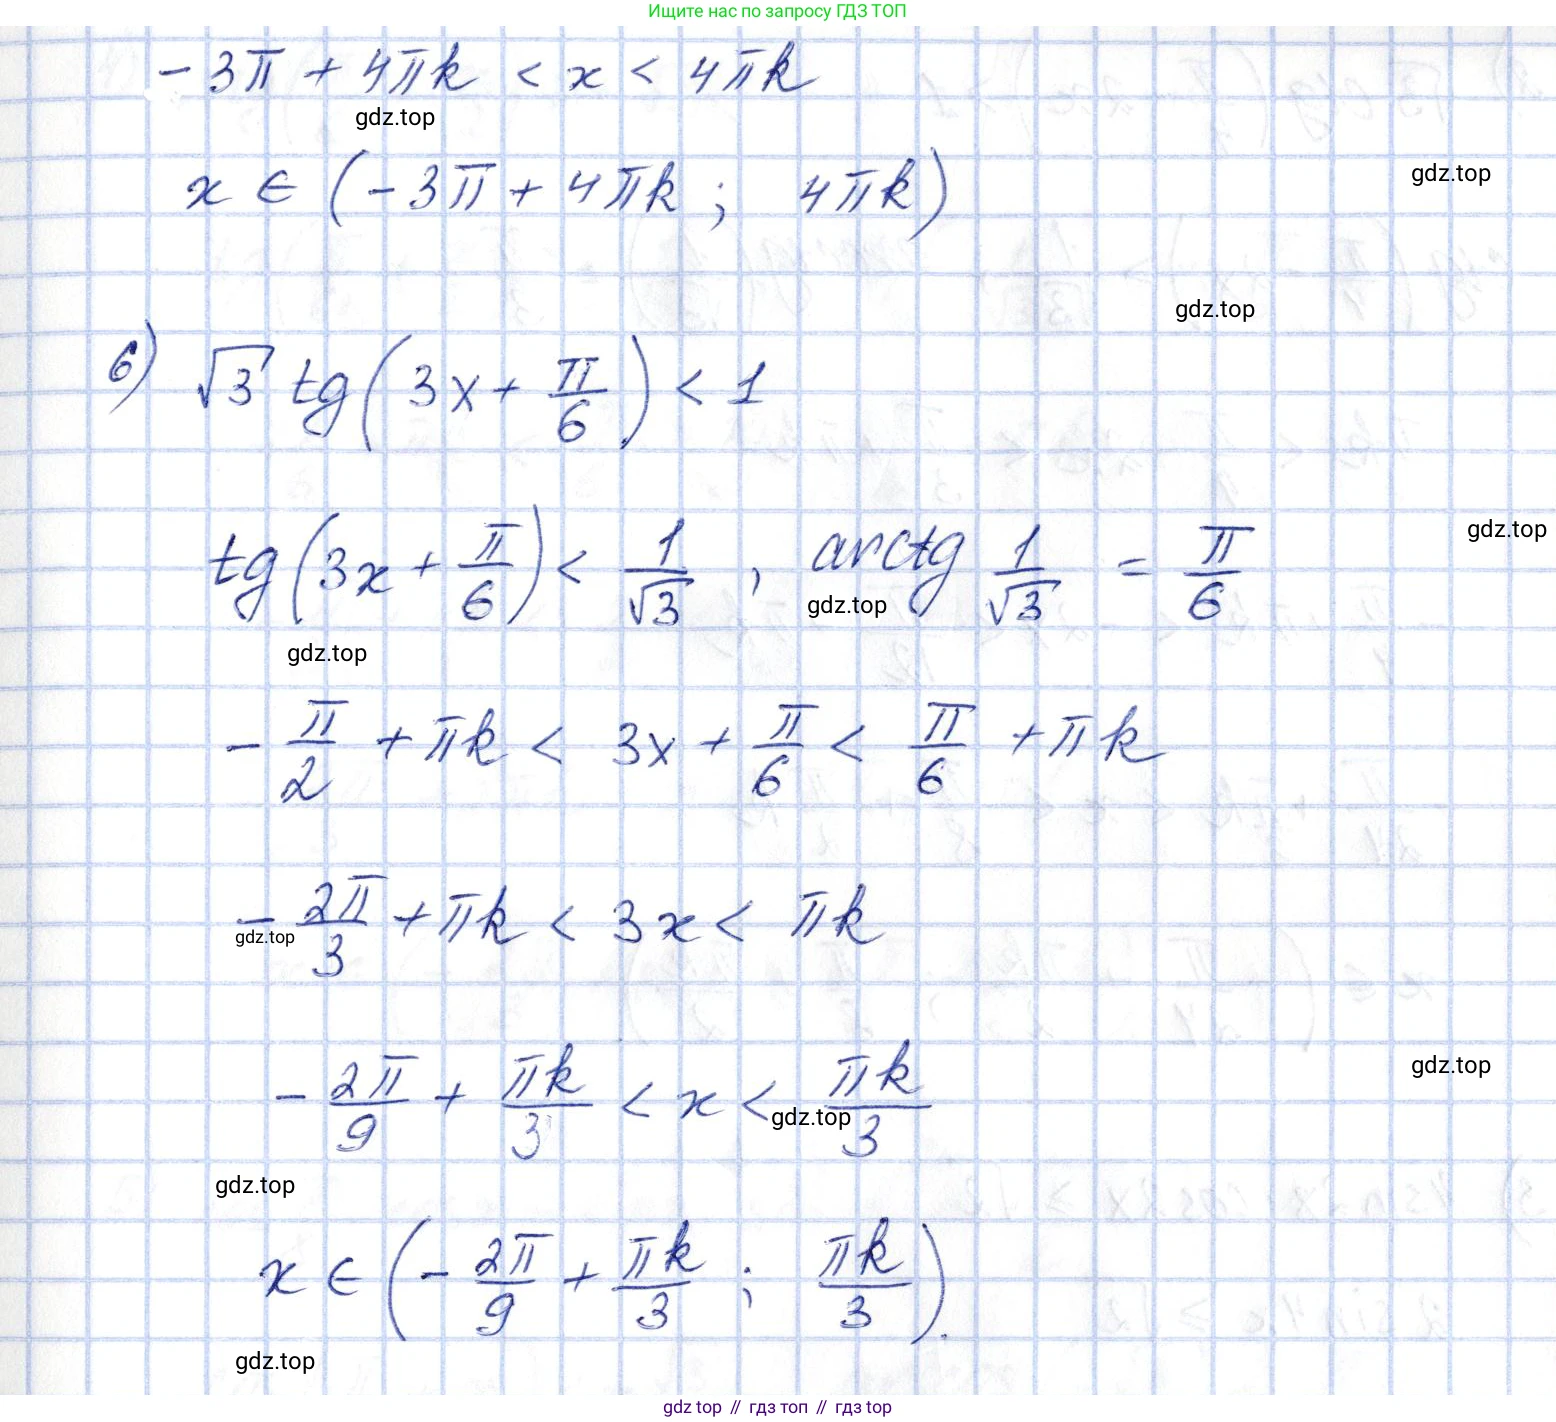 Ищите нас по запросу ГДЗ ТОП
-3π + 4πk < x < 4πk
gdz.top
x ∈ (-3π + 4πk ; 4πk)
gdz.top
gdz.top
6) √3 tg(3x + π/6) < 1
tg(3x + π/6) < 1/√3 , arctg 1/√3 = π/6
gdz.top
gdz.top
gdz.top
-π/2 + πk < 3x + π/6 < π/6 + πk
-2π/3 + πk < 3x < πk
gdz.top
-2π/9 + πk/3 < x < πk/3
gdz.top
gdz.top
gdz.top
x ∈ (-2π/9 + πk/3 ; πk/3).
gdz.top
gdz.top // гдз топ // гдз top